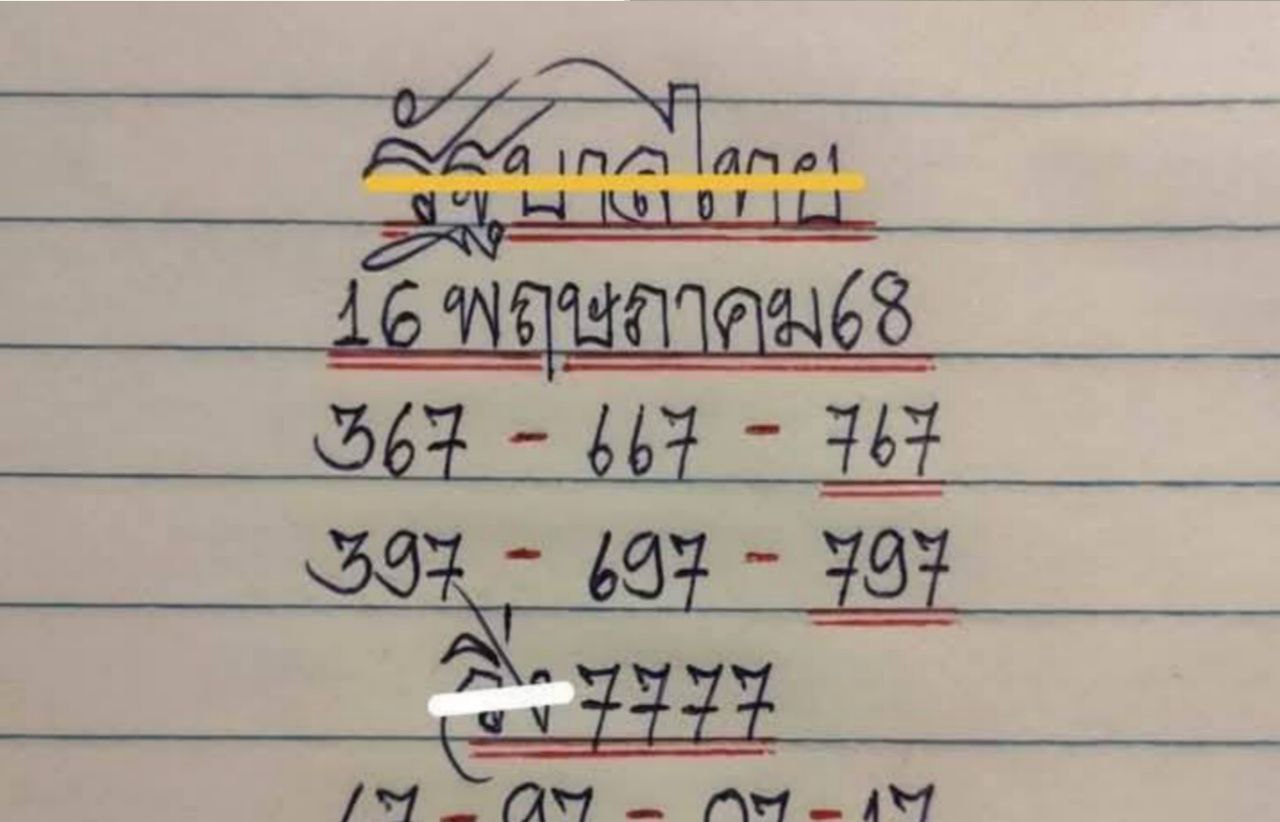 รัฐบาลไทย
16 พฤษภาคม68
367 - 667 - 767
397 - 697 - 797
วิ่ง 7777
67 - 97 - 07 - 17